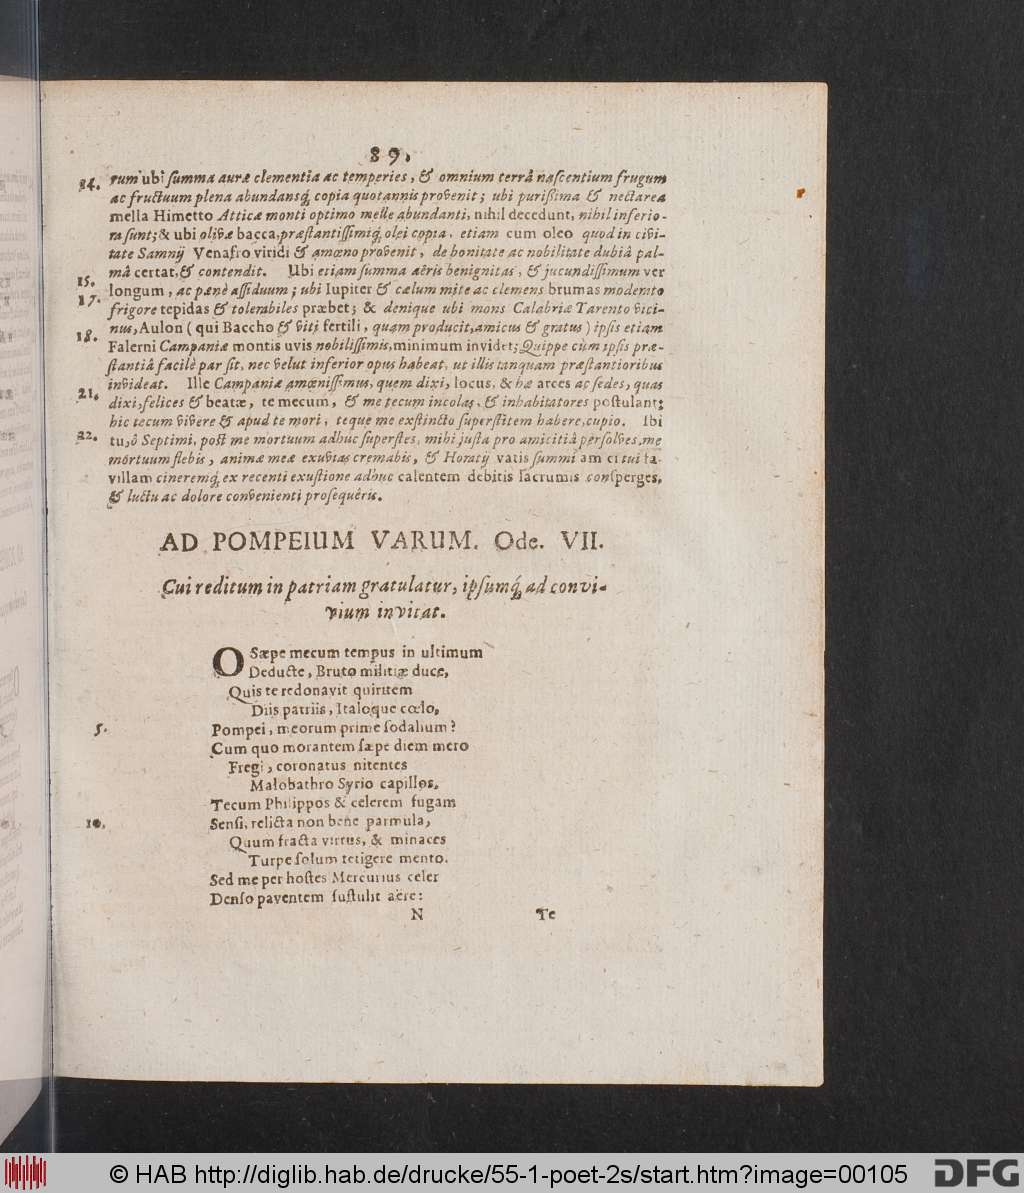 89.
14. rum ubi summa auræ clementia ac temperies, & omnium terrâ nascentium frugum
ac fructuum plena abundansq́; copia quotannis provenit; ubi purißima & nectarea
mella Himetto Atticæ monti optimo melle abundanti, nihil decedunt, nihil inferio-
ra sunt; & ubi olivæ bacca, præstantissimiq́; olei copia, etiam cum oleo quod in civi-
tate Samnij Venafro viridi & amœno provenit, de bonitate ac nobilitate dubiâ pal-
mâ certat, & contendit. Ubi etiam summa aëris benignitas, & jucundissimum ver
15. longum, ac pænè assiduum; ubi Iupiter & cælum mite ac clemens brumas moderato
17. frigore tepidas & tolerabiles præbet; & denique ubi mons Calabriæ Tarento vici-
nus, Aulon ( qui Baccho & viti fertili, quam producit, amicus & gratus ) ipsis etiam
18. Falerni Campaniæ montis uvis nobilissimis, minimum invidet; Quippe cùm ipsis præ-
stantiâ facilè par sit, nec velut inferior opus habeat, ut illis tanquam præstantioribus
invideat. Ille Campaniæ amœnissimus, quem dixi, locus, & hæ arces ac sedes, quas
21. dixi, felices & beatæ, te mecum, & me tecum incolas, & inhabitatores postulant;
hic tecum vivere & apud te mori, teque me exstincto superstitem habere, cupio. Ibi
22. tu, ô Septimi, post me mortuum adhuc superstes, mihi justa pro amicitiâ persolves, me
mortuum flebis, animæ meæ exuvias cremabis, & Horatij vatis summi amici tui fa-
villam cineremq́; ex recenti exustione adhuc calentem debitis lacrumis consperges,
& luctu ac dolore convenienti prosequêris.
AD POMPEIUM VARUM. Ode. VII.
Cui reditum in patriam gratulatur, ipsumq́; ad convi-
vium invitat.
O Sæpe mecum tempus in ultimum
Deducte, Bruto militiæ duce,
Quis te redonavit quiritem
Diis patriis, Italoque cœlo,
5. Pompei, meorum prime sodalium?
Cum quo morantem sæpe diem mero
Fregi, coronatus nitentes
Malobathro Syrio capillos,
Tecum Philippos & celerem fugam
10. Sensi, relicta non bene parmula,
Quum fracta virtus, & minaces
Turpe solum tetigere mento.
Sed me per hostes Mercurius celer
Denso paventem sustulit aëre:
N Te
© HAB http://diglib.hab.de/drucke/55-1-poet-2s/start.htm?image=00105
DFG